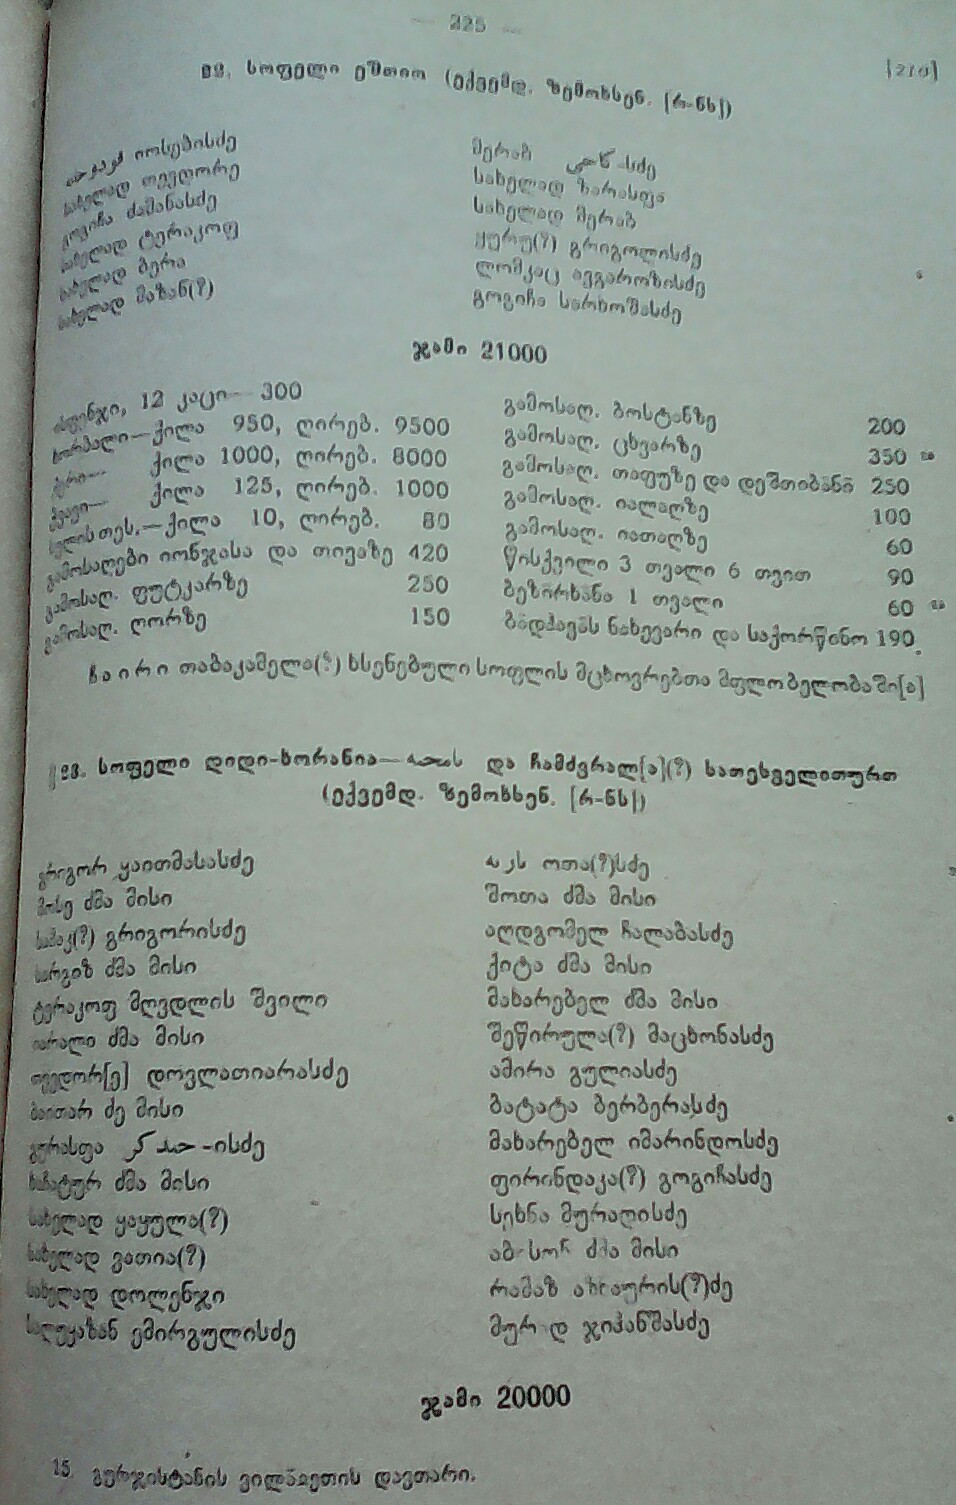 — 225 —
[210]
სოფელი ეშთიო (ექვემდ. ზემოხსენ. [რ-ნს])
იოსებისძე
სახელად თევდორე
გოგიჩა ძამანასძე
სახელად ტერაკოფ
სახელად ბერი
სახელად მაზან(?)
მერაბ -სძე
სახელად ზარასფა
სახელად მერაბ
ყურუ(?) გრიგოლისძე
ლომკაც ავგაროზისძე
გოგიჩა სარხოშასძე
ჯამი 21000
ისფენჯი, 12 კაცი— 300
ხორბალი—ქილა 950, ღირებ. 9500
ქერი— ქილა 1000, ღირებ. 8000
ჭვავი— ქილა 125, ღირებ. 1000
სელის თეს.—ქილა 10, ღირებ. 80
გამოსაღები იონჯასა და თივაზე 420
გამოსაღ. ფუტკარზე 250
გამოსაღ. ღორზე 150
გამოსაღ. ბოსტანზე 200
გამოსაღ. ცხვარზე 350
გამოსაღ. თაფუზე და დეშთიბანა̄ 250
გამოსაღ. იალაღზე 100
გამოსაღ. იათაღზე 60
წისქვილი 3 თვალი 6 თვით 90
ბეზირხანა 1 თვალი 60
ბადჰავას ნახევარი და საქორწინო 190.
ჩაირი თაბაკამელა(?) ხსენებული სოფლის მცხოვრებთა მფლობელობაში[ა]
სოფელი დიდი-ხორანია— და ჩამძვრალ[ა](?) სათესველითურთ
(ექვემდ. ზემოხსენ. [რ-ნს])
გრიგორ ყაითმასასძე
მოსე ძმა მისი
სააკ(?) გრიგორისძე
სარგიზ ძმა მისი
ტერაკოფ მღვდლის შვილი
იარალი ძმა მისი
თევდორ[ე] დოვლათიარასძე
ბაითარ ძე მისი
გურასფა -ისძე
ხაჩატურ ძმა მისი
სახელად ყაყულა(?)
სახელად ვათია(?)
სახელად დოლენჯი
სალუყაზან ემირგულისძე
ოთა(?)სძე
შოთა ძმა მისი
აღდგომელ ჩალაბასძე
ქიტა ძმა მისი
მახარებელ ძმა მისი
შეწირულა(?) მაცხონასძე
ამირა გულიასძე
ბატატა ბერბერასძე
მახარებელ იმარინდოსძე
ფირინდაკა(?) გოგიჩასძე
სეხნა მურაღისძე
ძმა მისი
რამაზ აზნაურის(?)ძე
ჯიჰანშასძე
ჯამი 20000
15. გურჯისტანის ვილაიეთის დავთარი.